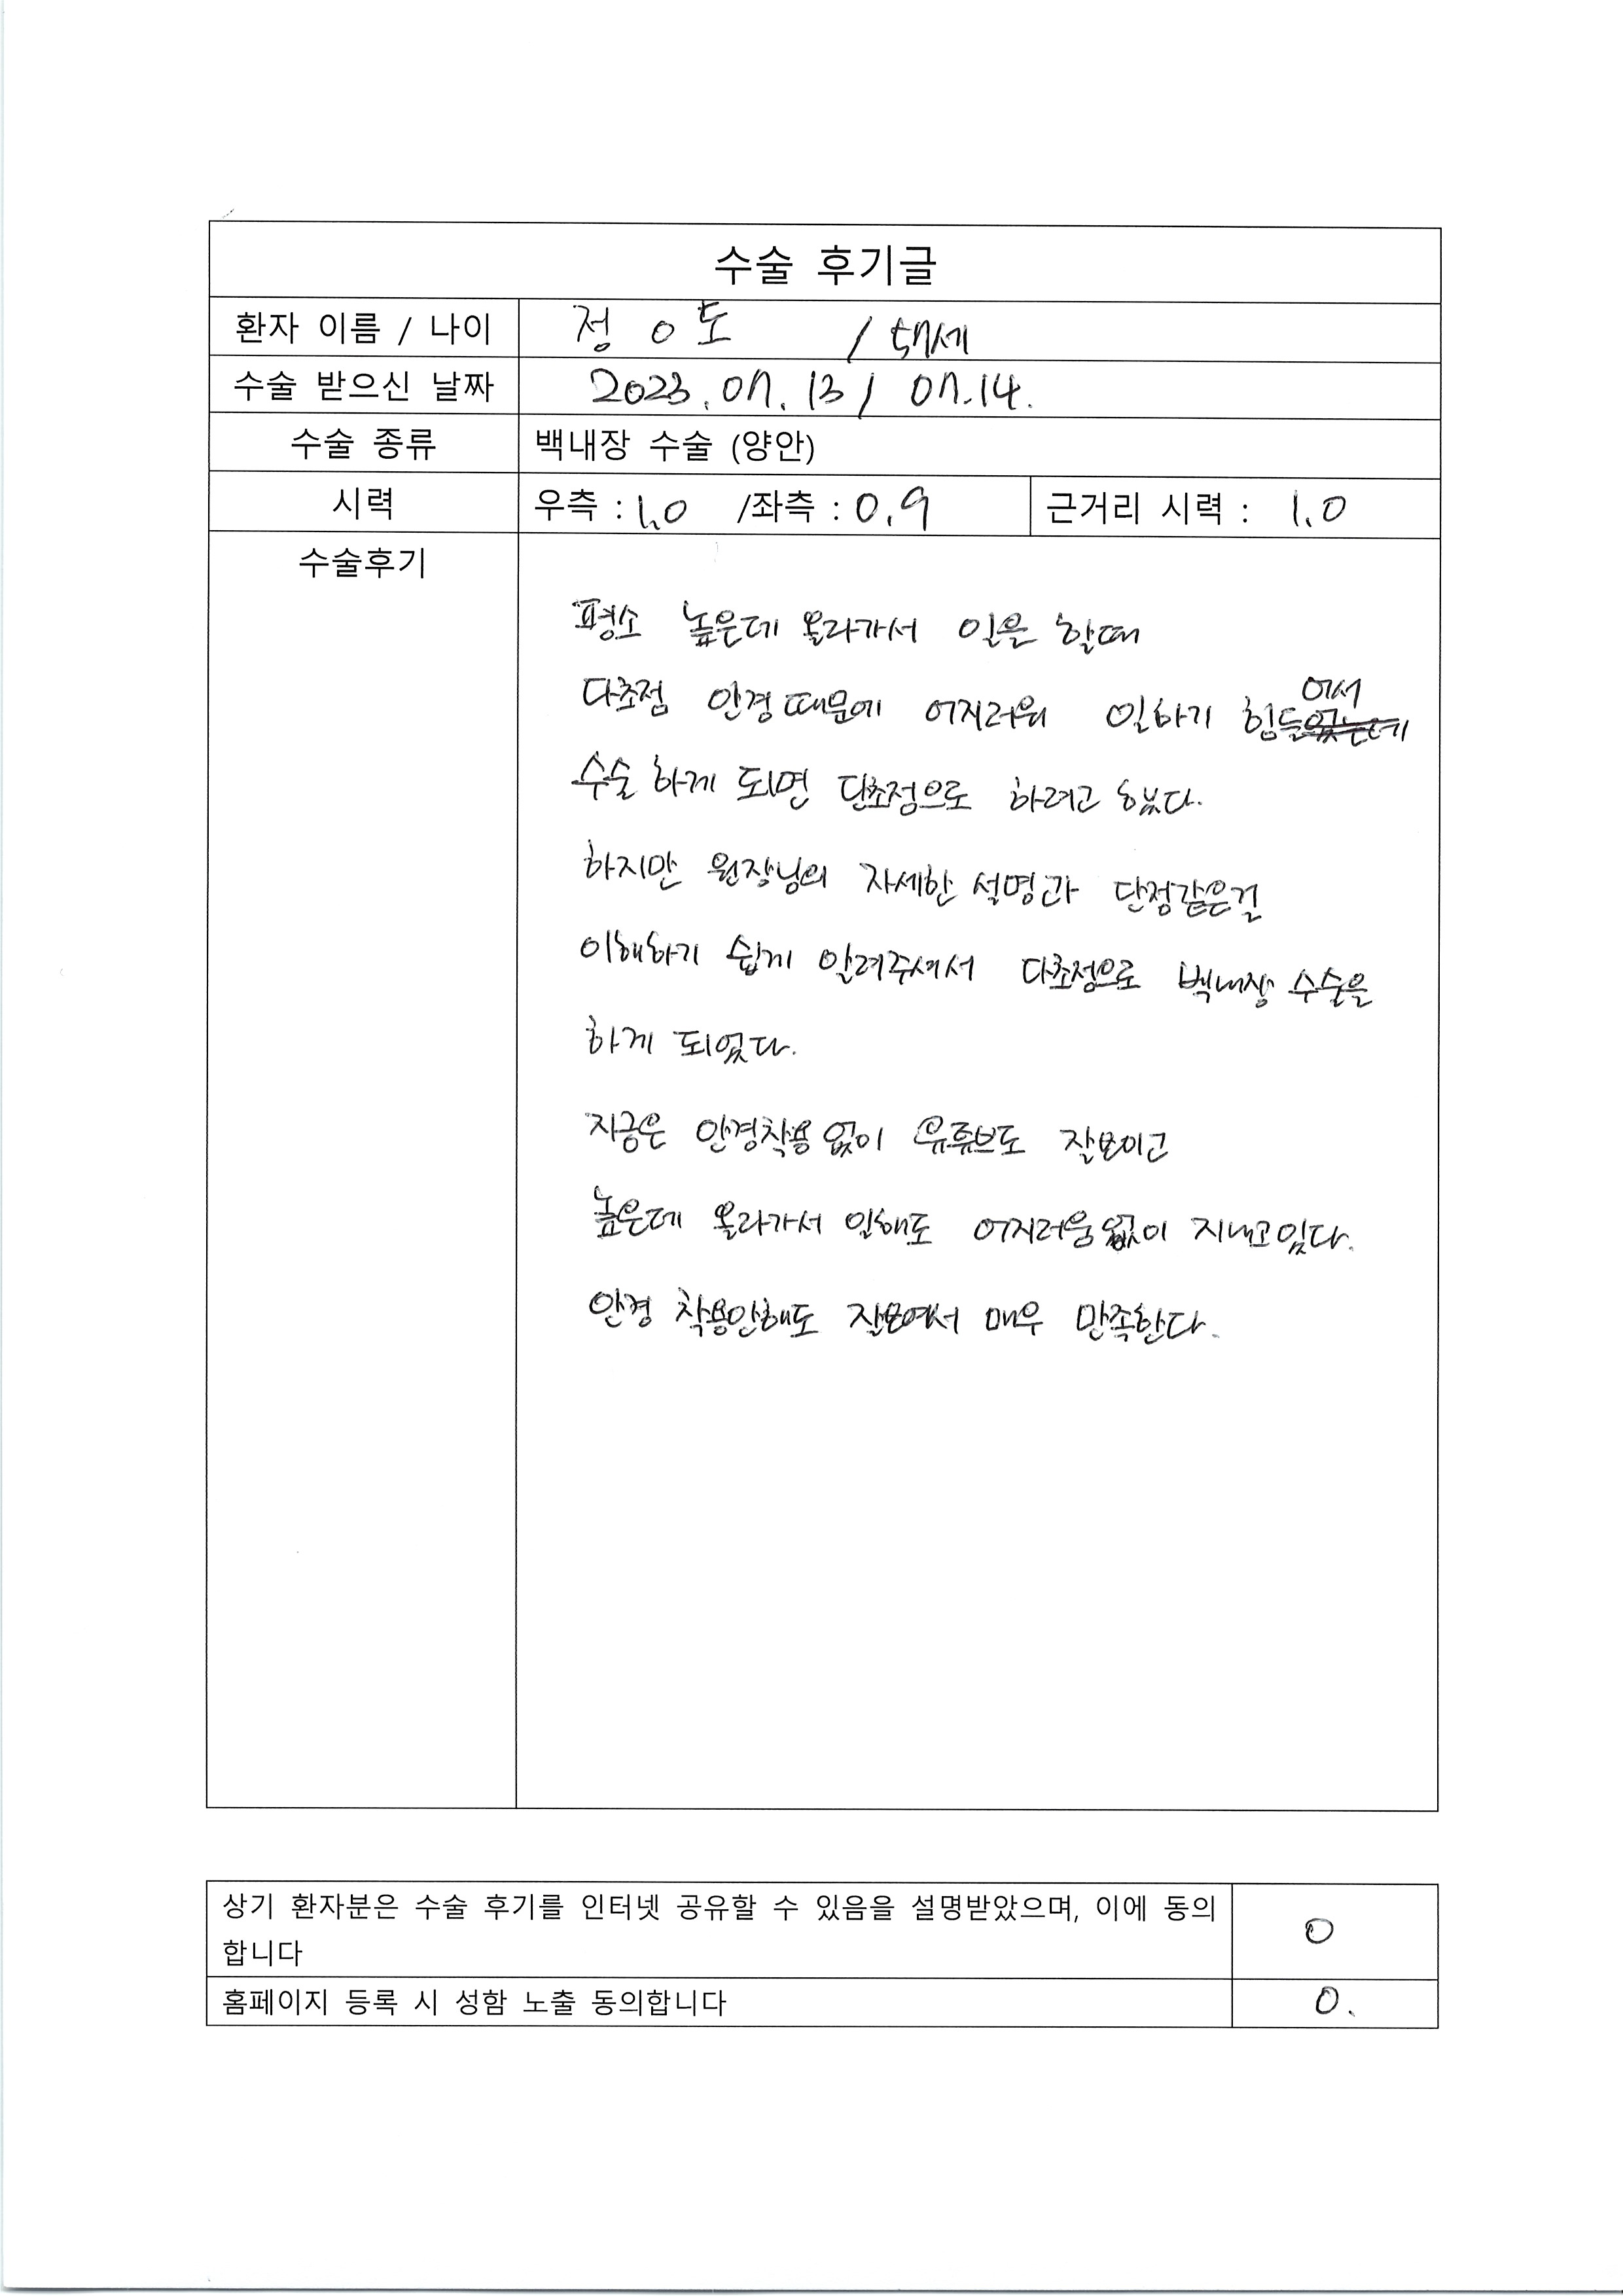 수술 후기글
환자 이름 / 나이 정 O 도 / 57세
수술 받으신 날짜 2023. 07. 13 / 07.14.
수술 종류 백내장 수술 (양안)
시력 우측 : 1.0 /좌측 : 0.9 근거리 시력 : 1.0
수술후기
평소 높은데 올라가서 일을 할때
다초점 안경때문에 어지러워 일하기 힘들어서
수술 하게 되면 단초점으로 하려고 했다.
하지만 원장님의 자세한 설명과 단점같은걸
이해하기 쉽게 알려주셔서 다초점으로 백내장 수술을
하게 되었다.
지금은 안경착용 없이 유튜브도 잘보이고
높은데 올라가서 일해도 어지러움없이 지내고있다.
안경 착용안해도 잘보여서 매우 만족한다.
상기 환자분은 수술 후기를 인터넷 공유할 수 있음을 설명받았으며, 이에 동의
합니다 O
홈페이지 등록 시 성함 노출 동의합니다 O.